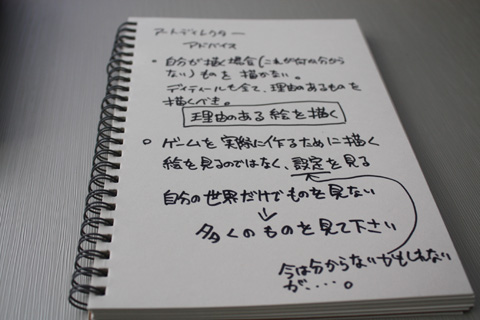 アートディレクター
アドバイス
・自分が描く場合(これが何か分から
ない)ものを描かない。
ディティールも全て、理由のあるものを
描くべき。
理由のある絵を描く
○ ゲームを実際に作るために描く
絵を見るのではなく、設定を見る
自分の世界だけでものを見ない
↓
多くのものを見て下さい
今は分からないかもしれない
が、…。